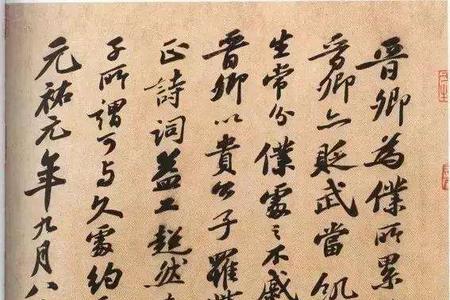 晉卿為僕所累
晉卿亦貶武當飢
生常分僕處之不戚
晉卿以貴公子罹
正詩詞益工超然
子所謂可与久處約
元祐元年九月八